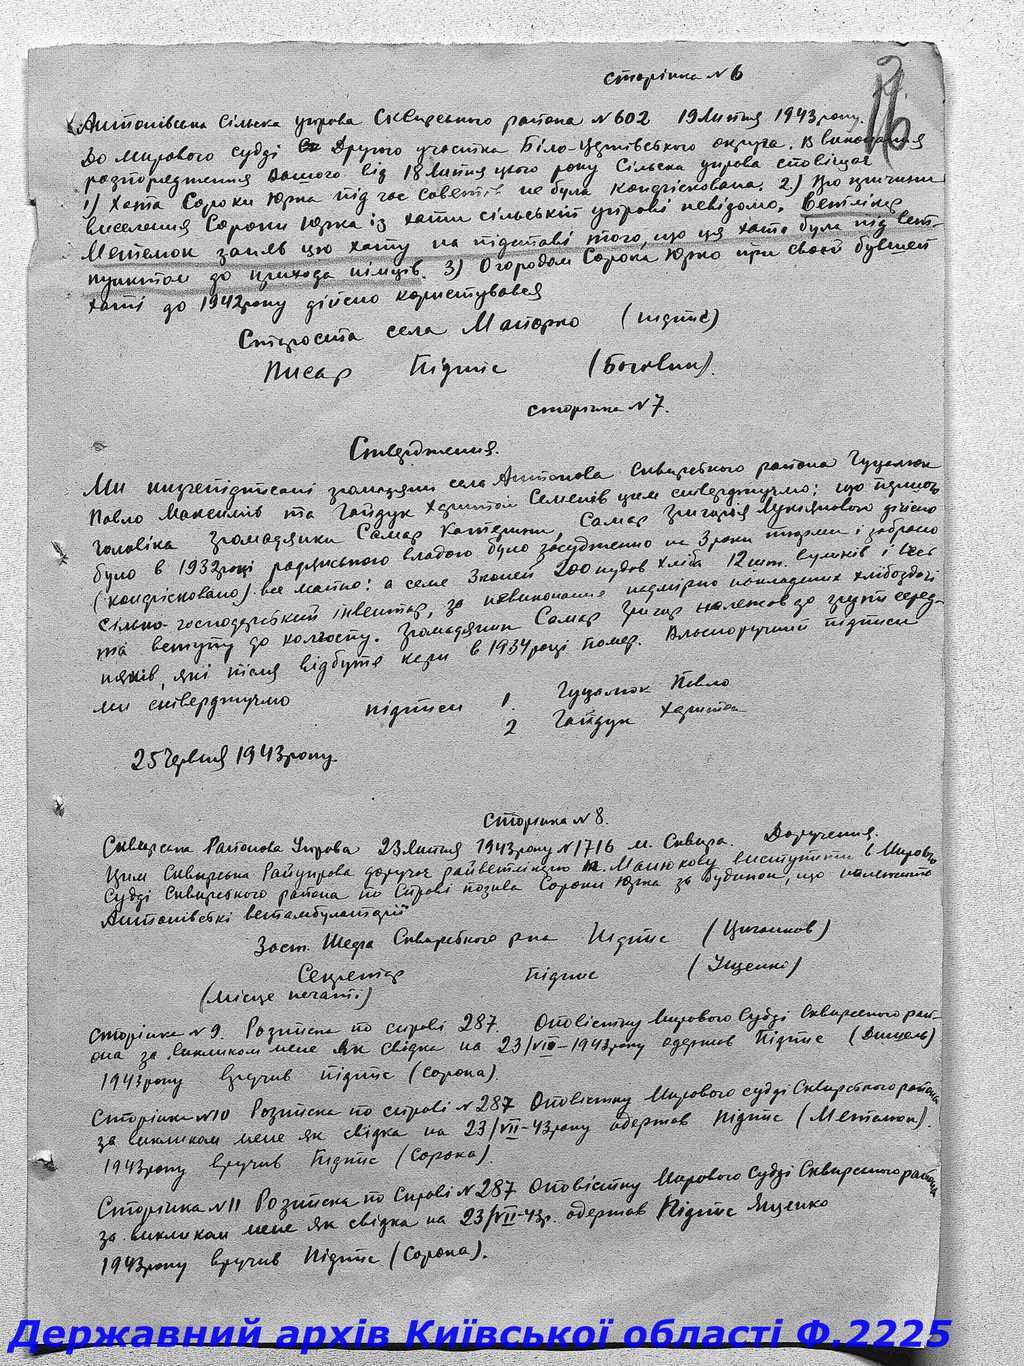 Сторінка №6
16
Антонівська Сільська управа Сквирського района №602 19 Липня 1943 року.
До Мирового судді Другого участка Біло-Церківського округа. В виконання
разпорядження Вашого від 18 Липня цього року Сільська управа сповіщає
1) Хата Сороки Юрка під час совєтів не була конфіскована. 2) Про причини
виселення Сороки Юрка із хати сільській управі невідомо. Ветлікар
Метелюк заняв цю хату на підставі того, що ця хата була під вет-
пунктом до прихода німців. 3) Огородом Сорока Юрко при своєй бувшей
хаті до 1942 року дійсно користувався
Староста села Маторко (підпис)
Писар Підпис (Боговик).
сторінка №7.
Ствердження.
Ми нижчепідписані громадяни села Антонова Сквирського района Гуцалюк
Павло Максимів та Гайдук Харитон Семенів цим стверджуємо: що першого
чоловіка громадянки Самар Катерини, Самар Григорія Лукянового дійсно
було в 1932 році радянською владою було засудженно на 3 роки тюрми і забрано
(конфісковано) все майно: а саме 3 коней, 200 пудов хліба 12 шт. вуликів і весь
сільсько-господарський інвентар, за невиконання надмірно накладених хлібоздачі
та вступу до колгоспу. Громадянин Самар Григор належав до групи серед-
няків, які після відбуття кари в 1934 році помер. Власноручний підписи
ми стверджуємо
підписи 1. Гуцалюк Павло
2 Гайдук Харитон
25 Червня 1943 року.
сторінка №8.
Сквирська Районова Управа 23 Липня 1943 року №1716 м. Сквира. Доручення.
Цим Сквирська Райуправа доручає райветлікарю Манюкову виступити в Мирово
Судді Сквирського района по справі позива Сороки Юрка за Будинок, що належить
Антонівській ветамбулаторії
Заст. Шефа Сквирського р-на Підпис (Циганков)
Секретар підпис (Ященко)
(місце печаті)
Сторінка №9. Розписка по справі 287. Оповістку Мирового Судді Сквирського рай-
она за викликом мене як свідка на 23/VII-1943 року одержав Підпис
1943 року вручив підпис (Сорока).
Сторінка №10 Розписка по справі №287 Оповістку Мирового судді Сквирського района
за викликом мене як свідка на 23/VII-43 року одержав Підпис (Метелюк).
1943 року вручив Підпис (Сорока).
Сторінка №11 Розписка по справі №287 Оповістку Мирового Судді Сквирського района
за викликом мене як свідка на 23/VII-43р. одержав Підпис Ященко
1943 року вручив Підпис (Сорока).
Державний архів Київської області Ф.2225